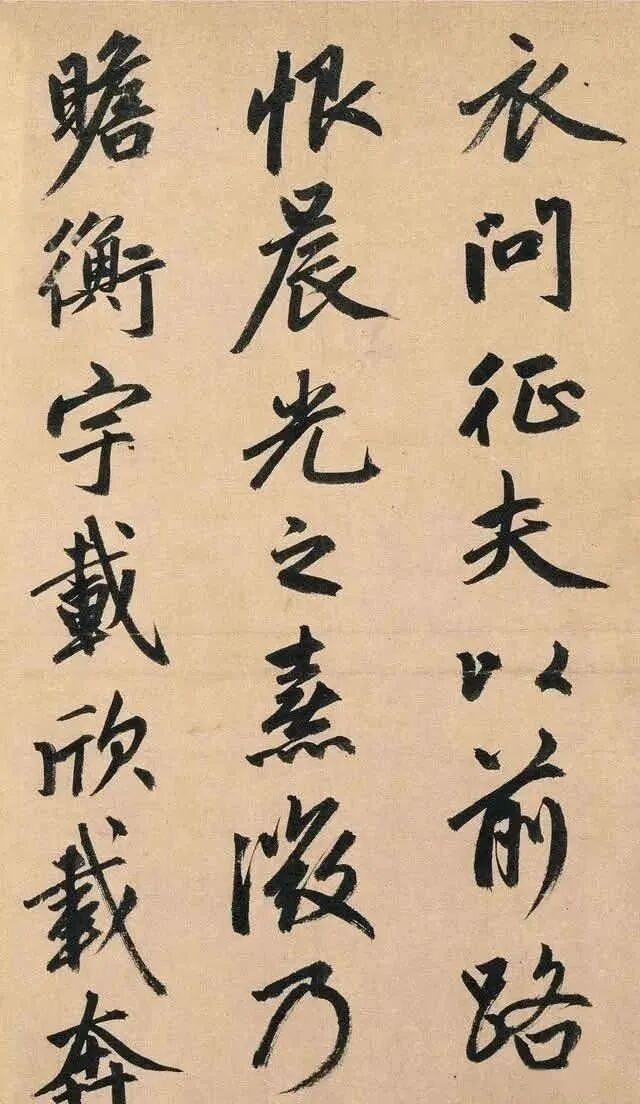 衣问征夫以前路
恨晨光之熹微乃
瞻衡宇載欣載奔